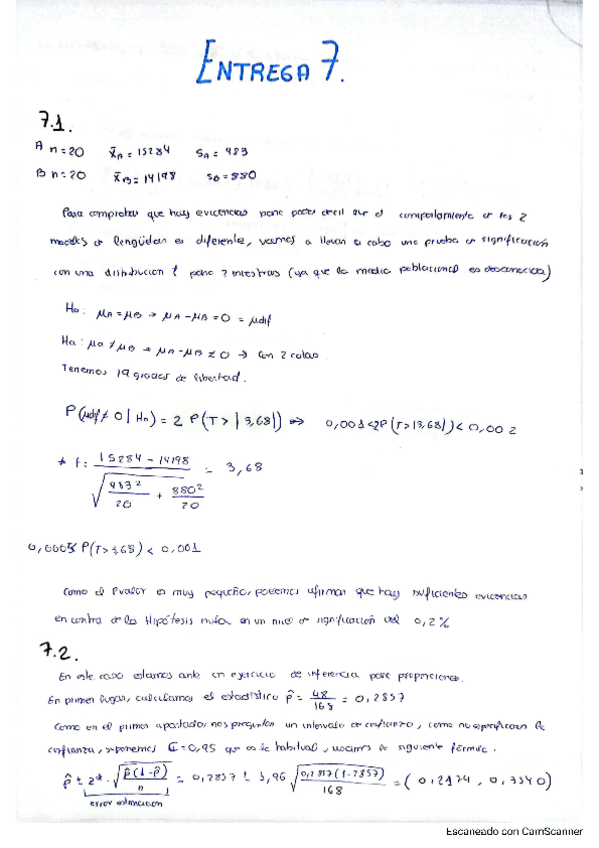 ENTREGA 7.
7.1.
A n=20 x̄A = 15284 SA = 483
B n=20 x̄B = 14198 SB = 880
Para comprobar que hay evidencias para poder decir que el comportamiento de los 2
modelos de lengüetas es diferente, vamos a llevar a cabo una prueba de significación
con una distribución t para 2 muestras (ya que la media poblacional es desconocida)
H0: μA = μB → μA - μB = 0 = μdif
Ha: μa ≠ μB → μA - μB ≠ 0 → Con 2 colas.
Tenemos 19 grados de libertad.
P(μdif ≠ 0 | H0) = 2 P(T > |3,68|) ⇒ 0,001 < 2P(T > |3,68|) < 0,002
* t: 15284 - 14198 / √(983²/20 + 880²/20) = 3,68
0,0005 < P(T > 3,68) < 0,001
Como el Pvalor es muy pequeño, podemos afirmar que hay suficientes evidencias
en contra de la Hipótesis nula en un nivel de significación del 0,2%
7.2.
En este caso estamos ante un ejercicio de inferencia para proporciones.
En primer lugar, calculamos el estadístico p̂ = 48/168 = 0,2857
Como en el primer apartado nos preguntan un intervalo de confianza, como no especifican la
confianza, suponemos C=0,95 que es la habitual, usamos la siguiente fórmula.
p̂ ± z* · √(p̂(1-p̂)/n) = 0,2857 ± 1,96 √(0,2857(1-2857)/168) = (0,2174, 0,3540)
error estimación
Escaneado con CamScanner